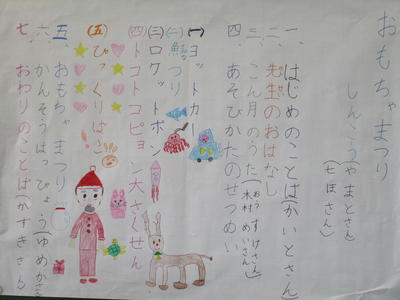 おもちゃまつり
しんこう やまとさん
(七ほさん)
一、はじめのことば(かいとさん)
二、先生のおはなし
三、こん月のうた(おうすけさん
木村 めいさん)
四、あそびかたのせつめい
(一)ヨットカー
(二)魚つり
(三)ロケットポン
(四)トコトコピョン大さくせん
(五)びっくりばこ!
五、おもちゃまつり
六、かんそうはっぴょう(ゆめかさん)
七、おわりのことば(かずきさん)